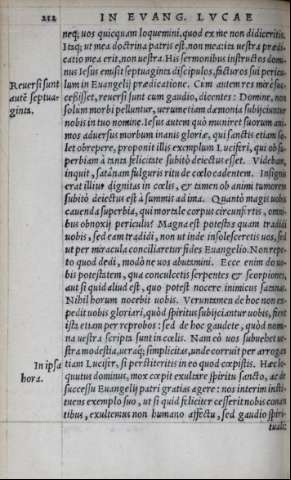 212 IN EVANG. LVCAE
neq; uos quicquam loquemini, quod ex me non didiceritis.
Itaq; ut mea doctrina patris est, non mea: ita uestra prædi-
catio mea erit, non uestra. His sermonibus instructos domi-
nus Iesus emisit septuaginta discipulos, facturos sui pericu-
Reuersi sunt
autē septua-
ginta.
lum in Euangelij prædicatione. Cum autem res
cessisset, reuersi sunt cum gaudio, dicentes: Domine, non
solum morbi pelluntur, uerum etiam dæmonia subijciuntur
nobis in tuo nomine. Iesus autem quò muniret suorum ani-
mos aduersus morbum inanis gloriæ, qui sanctis etiam so-
let obrepere, proponit illis exemplum Luciferi, qui ob su-
perbiam à tanta felicitate subitò deiectus esset. Videbam,
inquit, satanam fulguris ritu de cœlo cadentem. Insignis
erat illius dignitas in cœlis, & tamen ob animi tumorem
subitò deiectus est à summis ad ima. Quantò magis uobis
cauenda superbia, qui mortale corpus circunfertis, omni-
bus obnoxij periculis? Magna est potestas quam tradidi
uobis, sed eam tradidi, non ut inde insolesceretis uos, sed
ut per miracula conciliaretur fides Euangelio. Non repe-
to quod dedi, modò ne uos abutamini. Ecce enim do uo-
bis potestatem, qua conculcetis serpentes & scorpiones,
aut si quid aliud est, quo potest nocere inimicus satanas.
Nihil horum nocebit uobis. Veruntamen de hoc non ex-
pedit uobis gloriari, quòd spiritus subijciantur uobis, fient
ista etiam per reprobos: sed de hoc gaudete, quòd nomi-
na uestra scripta sunt in cœlis. Nam eò uos subuehet ue-
stra modestia, ueraq; simplicitas, unde corruit per arrogan
In ipsa
hora.
tiam Lucifer, si perstiteritis in eo quod cœpistis. Hæc lo-
quutus dominus, mox cœpit exultare spiritu sancto, ac de
successu Euangelij patri gratias agere: nos interim insti-
tuens exemplo suo, ut si quid feliciter cesserit nobis conan
tibus, exultemus non humano affectu, sed gaudio spiri-
tuali: